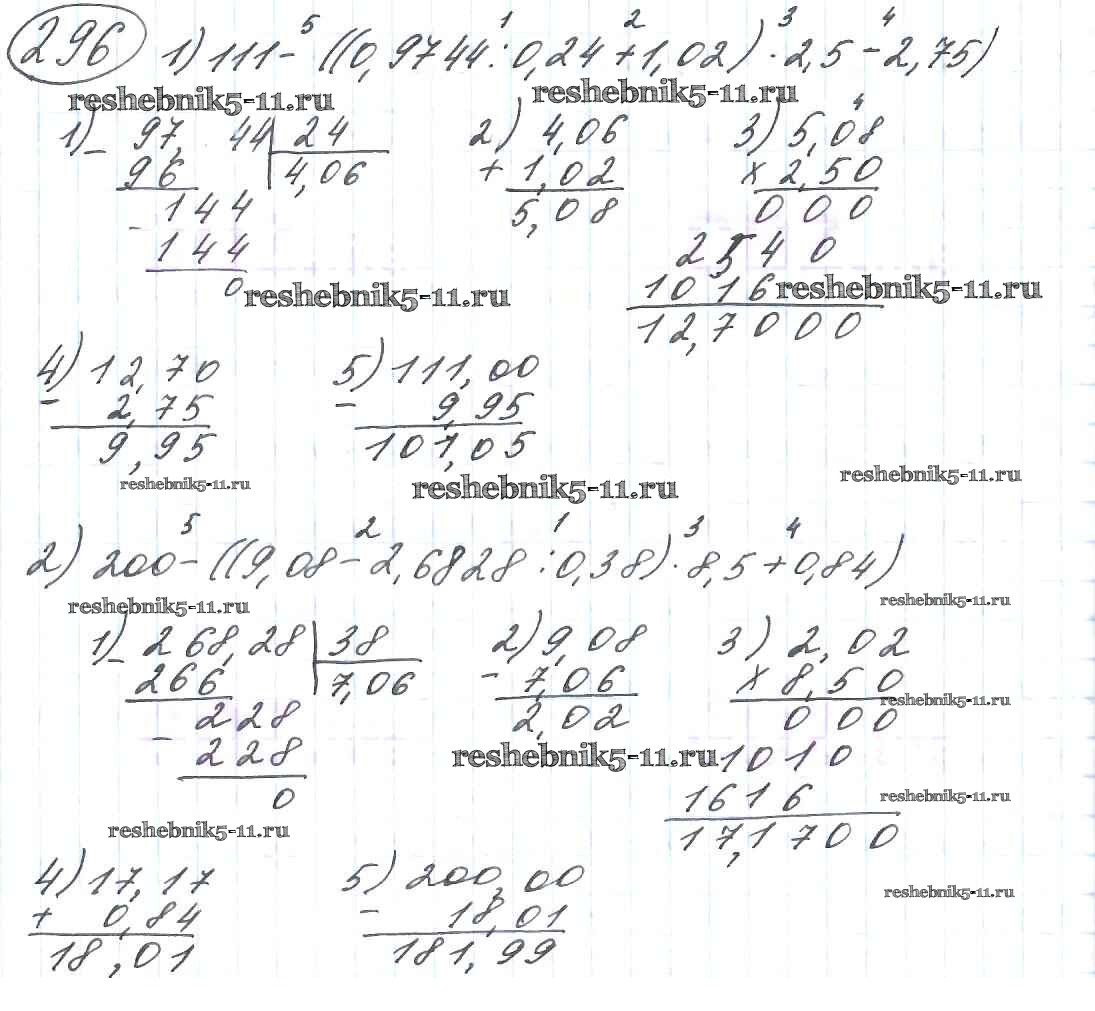 296 1) 111 - ((0,9744 : 0,24 + 1,02) · 2,5 - 2,75)
5 1 2 3 4
reshebnik5-11.ru reshebnik5-11.ru
1) 97,44 | 24 2) 4,06 3) 5,08
4
- 96 4,06 + 1,02 × 2,50
- 144 5,08 000
144 2540
0 reshebnik5-11.ru 1016 reshebnik5-11.ru
12,7000
4) 12,70 5) 111,00
- 2,75 - 9,95
9,95 101,05
reshebnik5-11.ru reshebnik5-11.ru reshebnik5-11.ru
5 2 1 3 4
2) 200 - ((9,08 - 2,6828 : 0,38) · 8,5 + 0,84)
reshebnik5-11.ru reshebnik5-11.ru
1) 268,28 | 38 2) 9,08 3) 2,02
- 266 7,06 - 7,06 × 8,50
reshebnik5-11.ru
- 228 2,02 000
228 reshebnik5-11.ru 1010
0 1616 reshebnik5-11.ru
reshebnik5-11.ru 17,1700
4) 17,17 5) 200,00 reshebnik5-11.ru
+ 0,84 - 18,01
18,01 181,99